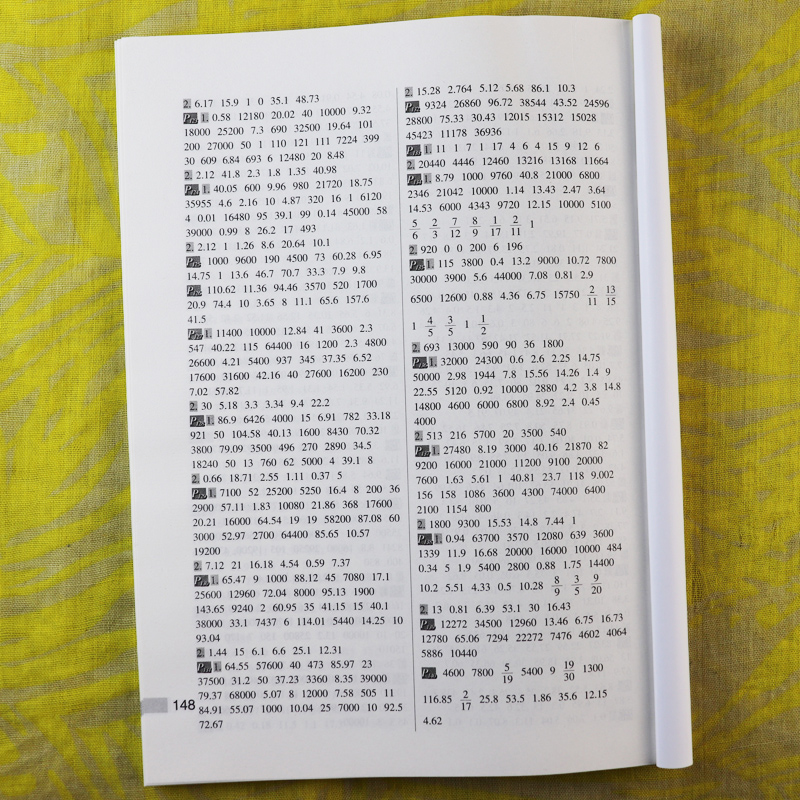 2. 6.17 15.9 1 0 35.1 48.73
1. 0.58 12180 20.02 40 10000 9.32
18000 25200 7.3 690 32500 19.64 101
200 27000 50 1 110 121 111 7224 399
30 609 6.84 693 6 12480 20 8.48
2. 2.12 41.8 2.3 1.8 1.35 40.98
1. 40.05 600 9.96 980 21720 18.75
35955 4.6 2.16 10 4.87 320 16 1 6120
4 0.01 16480 95 39.1 99 0.14 45000 58
39000 0.99 8 26.2 17 493
2. 2.12 1 1.26 8.6 20.64 10.1
1000 9600 190 4500 73 60.28 6.95
14.75 1 13.6 46.7 70.7 33.3 7.9 9.8
110.62 11.36 94.46 3570 520 1700
20.9 74.4 10 3.65 8 11.1 65.6 157.6
41.5
1. 11400 10000 12.84 41 3600 2.3
547 40.22 115 64400 16 1200 2.3 4800
26600 4.21 5400 937 345 37.35 6.52
17600 31600 42.16 40 27600 16200 230
7.02 57.82
2. 30 5.18 3.3 3.34 9.4 22.2
1. 86.9 6426 4000 15 6.91 782 33.18
921 50 104.58 40.13 1600 8430 70.32
3800 79.09 3500 496 270 2890 34.5
18240 50 13 760 62 5000 4 39.1 8
2. 0.66 18.71 2.55 1.11 0.37 5
1. 7100 52 25200 5250 16.4 8 200 36
2900 57.11 1.83 10080 21.86 368 17600
20.21 16000 64.54 19 19 58200 87.08 60
3000 52.97 2700 64400 85.65 10.57
19200
2. 7.12 21 16.18 4.54 0.59 7.37
1. 65.47 9 1000 88.12 45 7080 17.1
25600 12960 72.04 8000 95.13 1900
143.65 9240 2 60.95 35 41.15 15 40.1
38000 33.1 7437 6 114.01 5440 14.25 10
93.04
2. 1.44 15 6.1 6.6 25.1 12.31
1. 64.55 57600 40 473 85.97 23
37500 31.2 50 37.23 3360 8.35 39000
79.37 68000 5.07 8 12000 7.58 505 11
84.91 55.07 1000 10.04 25 7000 10 92.5
72.67
148
2. 15.28 2.764 5.12 5.68 86.1 10.3
9324 26860 96.72 38544 43.52 24596
28800 75.33 30.43 12015 15312 15028
45423 11178 36936
1. 11 1 7 1 17 4 6 4 15 9 12 6
2. 20440 4446 12460 13216 13168 11664
1. 8.79 1000 9760 40.8 21000 6800
2346 21042 10000 1.14 13.43 2.47 3.64
14.53 6000 4343 9720 12.15 10000 5100
5/6 2/3 7/12 8/9 1/17 2/11 1
2. 920 0 0 200 6 196
1. 115 3800 0.4 13.2 9000 10.72 7800
30000 3900 5.6 44000 7.08 0.81 2.9
6500 12600 0.88 4.36 6.75 15750 2/11 13/15
1 4/5 3/5 1 1/2
2. 693 13000 590 90 36 1800
1. 32000 24300 0.6 2.6 2.25 14.75
50000 2.98 1944 7.8 15.56 14.26 1.4 9
22.55 5120 0.92 10000 2880 4.2 3.8 14.8
14800 4600 6000 6800 8.92 2.4 0.45
4000
2. 513 216 5700 20 3500 540
1. 27480 8.19 3000 40.16 21870 82
9200 16000 21000 11200 9100 20000
7600 1.63 5.61 1 40.81 23.7 118 9.002
156 158 1086 3600 4300 74000 6400
2100 1154 800
2. 1800 9300 15.53 14.8 7.44 1
1. 0.94 63700 3570 12080 639 3600
1339 11.9 16.68 20000 16000 10000 484
0.34 5 1.9 5400 2800 0.88 1.75 14400
10.2 5.51 4.33 0.5 10.28 8/9 3/5 9/20
2. 13 0.81 6.39 53.1 30 16.43
12272 34500 12960 13.46 6.75 16.73
12780 65.06 7294 22272 7476 4602 4064
5886 10440
4600 7800 5/19 5400 9 19/30 1300
116.85 2/17 25.8 53.5 1.86 35.6 12.15
4.62